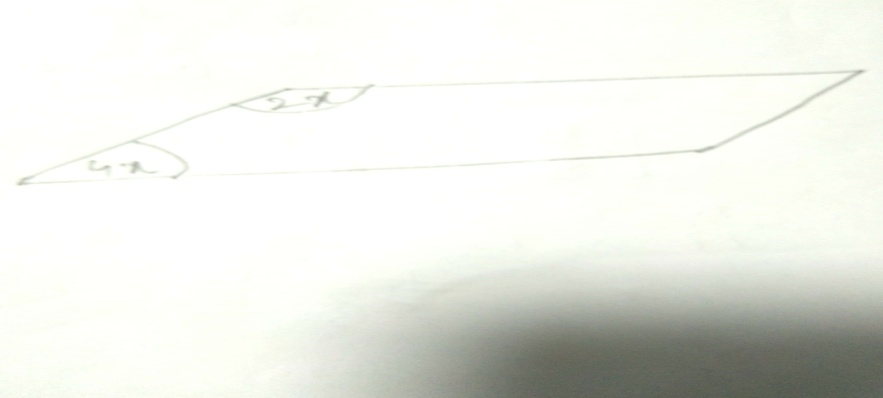 2x
4x